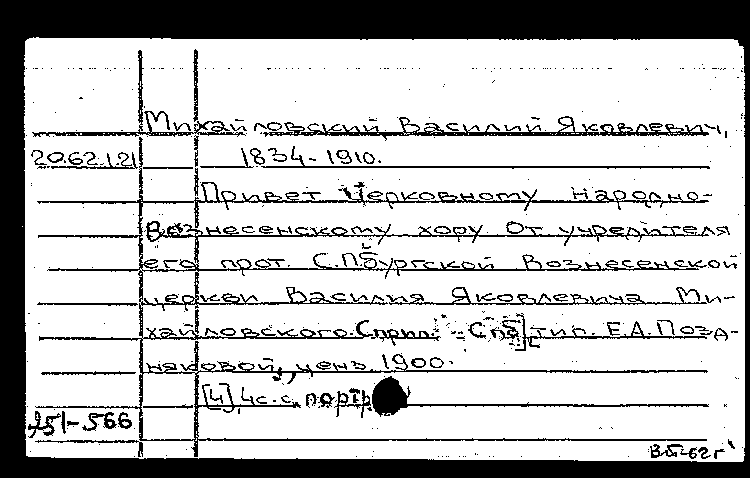 Михайловский, Василий Яковлевич,
20.62.121 1834-1910.
Привет Церковному Народно-
Вознесенскому хору от учредителя
его прот. С.Пбургской Вознесенской
церкви Василия Яковлевича Ми-
хайловского. С прил. - Спб., тип. Е.А. Позд-
няковой, ценз. 1900.
[4], 4с. с. портр
251-566